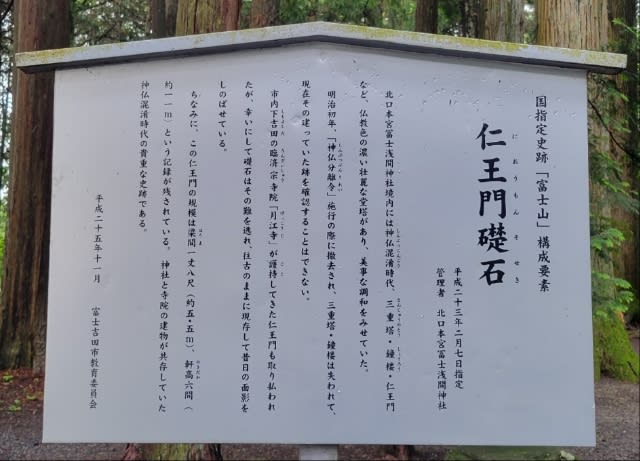 国指定史跡「富士山」構成要素
仁王門礎石
におうもん そせき
平成二十三年二月七日指定
管理者 北口本宮冨士浅間神社
北口本宮冨士浅間神社境内には神仏混淆時代、三重塔・鐘楼・仁王門
など、仏教色の濃い壮麗な堂塔があり、美事な調和をみせていた。
明治初年、「神仏分離令」施行の際に撤去され、三重塔・鐘楼は失われて、
現在その建っていた跡を確認することはできない。
市内下吉田の臨済宗寺院「月江寺」が護持してきた仁王門も取り払われ
たが、幸いにして礎石はその難を逃れ、往古のままに現存して昔日の面影を
しのばせている。
ちなみに、この仁王門の規模は梁間一丈八尺(約五・五m)、軒高六間(
約一一m)という記録が残されている。神社と寺院の建物が共存していた
神仏混淆時代の貴重な史跡である。
平成二十五年十一月 富士吉田市教育委員会